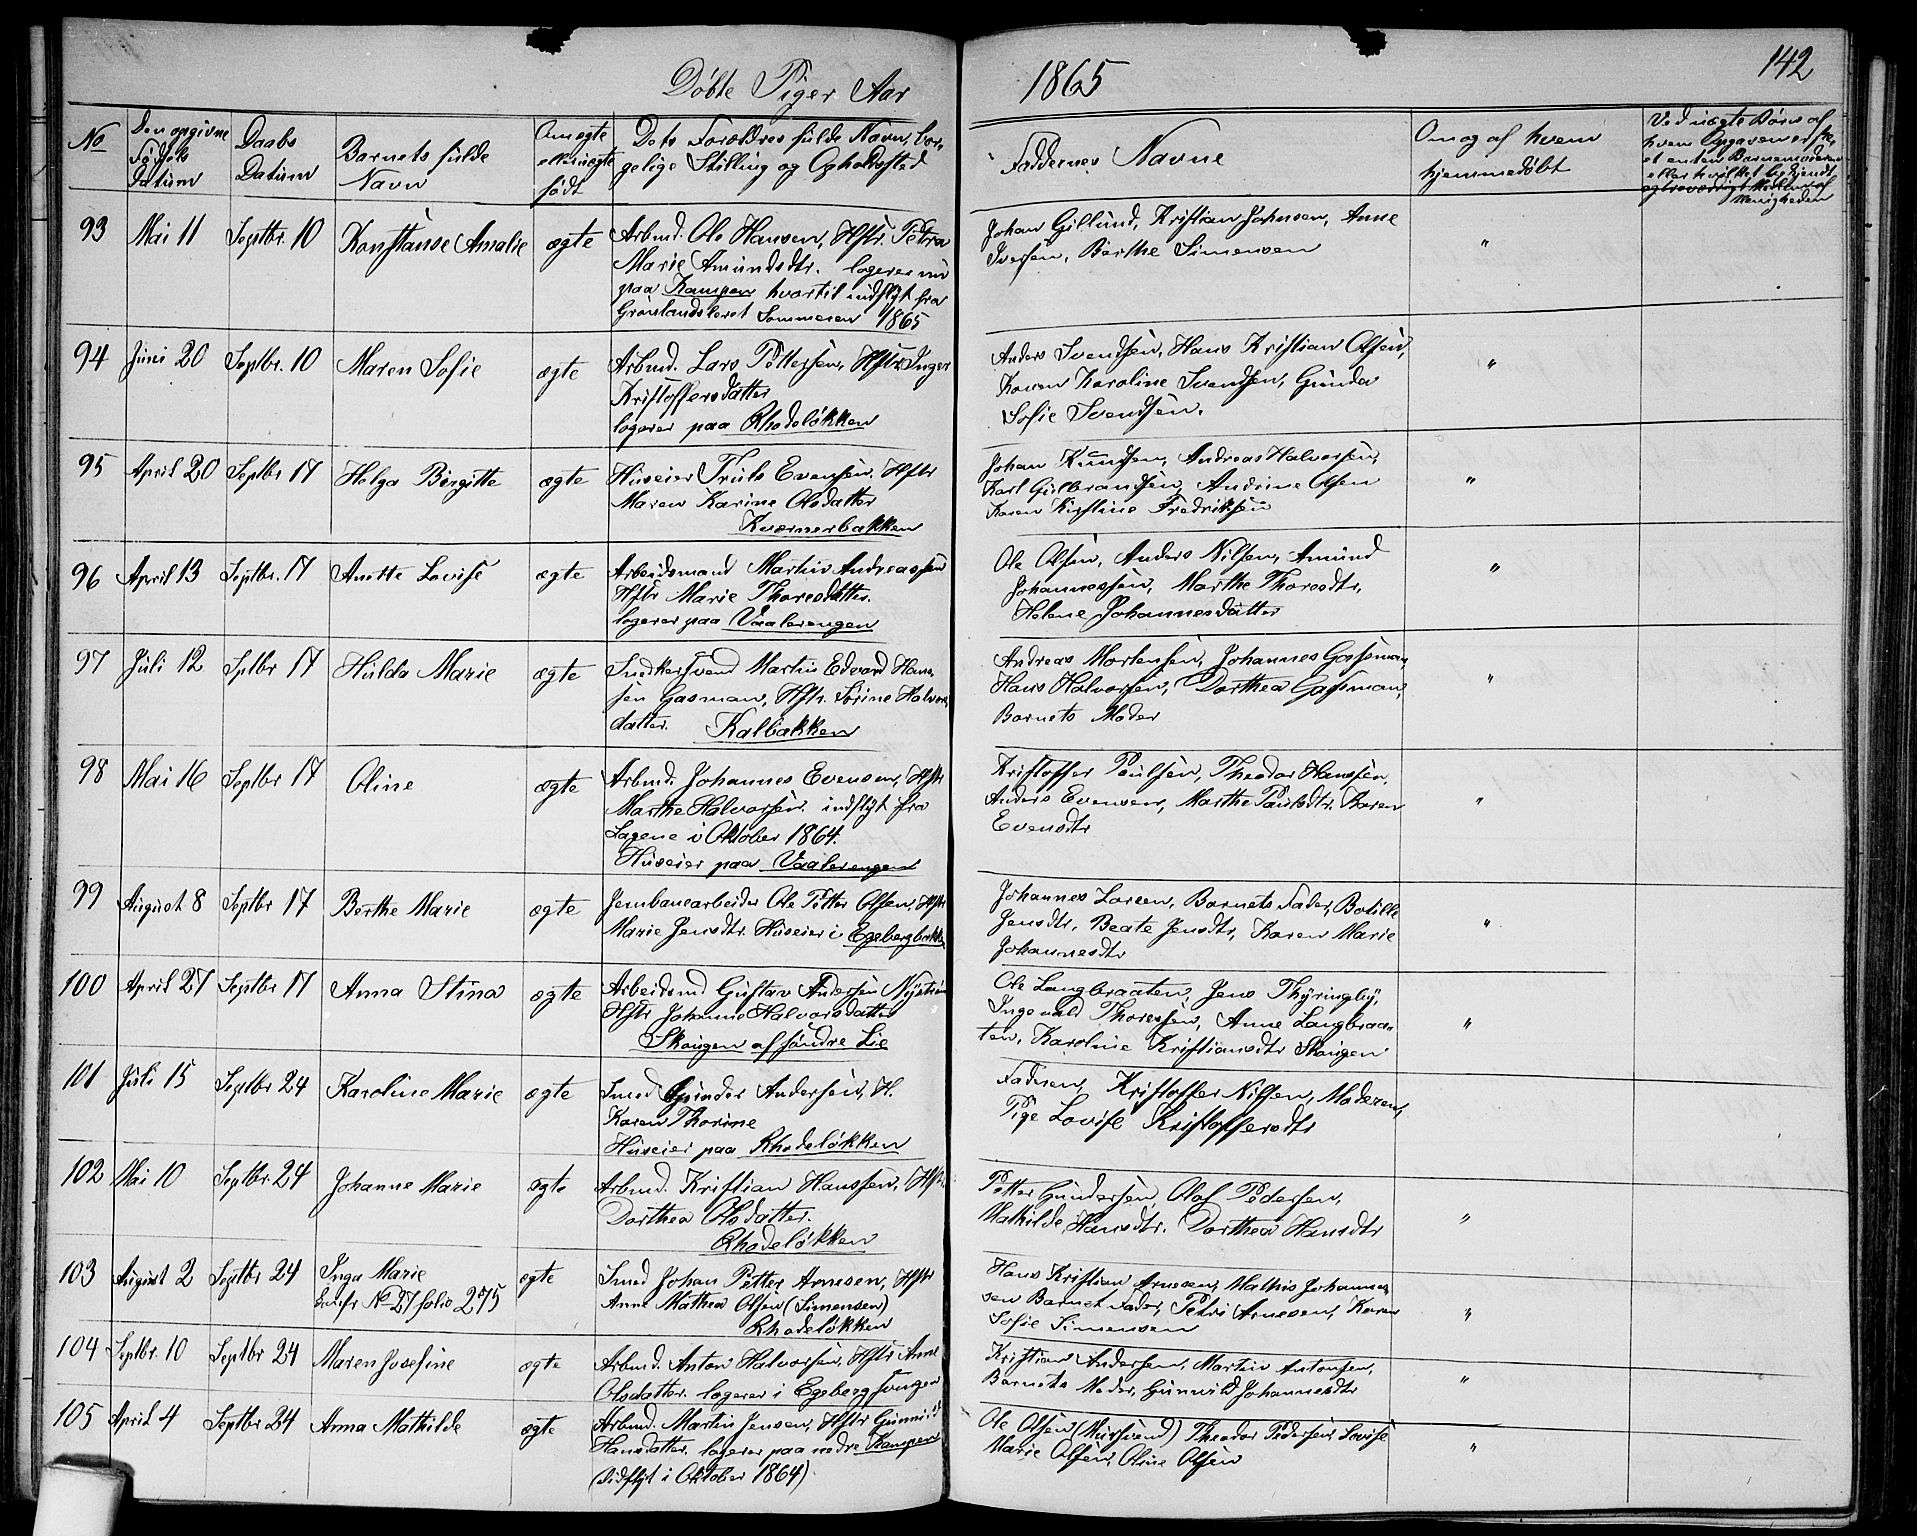 142
Døbte Piger Aar 1865
No
Den opgivne Fødsels Datum
Daabs Datum
Barnets fulde Navn
Om ægte eller uægte født
Dets Forældres fulde Navn, borgelige Stilling og Opholdssted
Faddernes Navne
Om og af hvem hjemmedøbt
Ved uægte Børn af hvem Opgaven er
93 Mai 11 Septbr. 10 Konstanse Amalie ægte Arbmd. Ole Hansen, Hstr. Petra
Marie Amundsdtr. logerer nu
paa Kampen hvortil indflyt fra
Grønlandsleret Sommeren 1865
Johan Gillund, Kristian Johnsen, Anne
Iversen, Berthe Simensen "
94 Juni 20 Septbr. 10 Maren Sofie ægte Arbmd. Lars Pettersen, Hstr Inger
Kristoffersdatter
logerer paa Rhodeløkken
Anders Svendsen, Hans Kristian Olsen,
Karen Karoline Svendsen, Gunda
Sofie Svendsen. "
95 April 20 Septbr 17 Helga Birgitte ægte Huseier Truls Evensen, Hstr
Maren Karine Olsdatter
Kværnerbakken
Johan Knudsen, Andreas Halvorsen,
Karl Gulbrandsen, Andrine Olsen
Karen Kirstine Fredriksen "
96 April 13 Septbr. 17 Anette Lovise ægte Arbeidsmand Martin Andreassen
Hstr Marie Thoresdatter.
logerer paa Vaalerengen
Ole Olsen, Anders Nilsen, Amund
Johannessen, Marthe Thoresdtr,
Helene Johannesdatter "
97 Juli 12 Sptbr 17 Hulda Marie ægte Snedkersvend Martin Edvard Hans-
sen Gasman, Hstr. Sørine Halvors
datter. Kalbakken
Andreas Mortensen, Johannes Gassman,
Hans Halvorsen, Dorthea Gassman,
Barnets Moder "
98 Mai 16 Septbr 17 Oline ægte Arbmd. Johannes Evensen, Hstr
Marthe Halvorsen. indflyt fra
Sagene i Oktober 1864.
Huseier paa Vaalerengen
Kristoffer Paulsen, Theodor Hanssen,
Anders Evensen, Marthe Paulsdtr, Karen
Evensdtr "
99 August 8 Septbr 17 Berthe Marie ægte Jernbanearbeider Ole Petter Olsen, Hstr
Marie Jensdtr. Huseier i Egebergbakken
Johannes Loreen, Barnets Fader, Botille
Jensdtr, Beate Jensdtr, Karen Marie
Johannesdtr "
100 April 27 Septbr 17 Anna Stina ægte Arbeidsmd Gustav Andersen Nystrøm
Hstr Johanne Halvorsdatter
Skougen af søndre Lie
Ole Langbraaten, Jens Thyringby,
Ingevald Thoresen, Anne Langbraa-
ten, Karoline Kristiansdtr Skougen "
101 Juli 15 Septbr 24 Karoline Marie ægte Smed Gunder Andersen, H.
Karen Thorine
Huseier paa Rhodeløkken
Faderen, Kristoffer Nilsen, Moderen,
Pige Lovise Kristoffersdtr
102 Mai 10 Septbr 24 Johanne Marie ægte Arbmd. Kristian Hanssen, Hstr.
Dorthea Olsdatter.
Rhodeløkken
Petter Gundersen, Olaf Pedersen,
Mathilde Hansdtr. Dorthea Hansdtr "
103 August 2 Septbr 24 Inga Marie
No 27 folio 275 ægte Smed Johan Petter Arnesen, Hstr
Anne Mathea Olsen (Simensen)
Rhodeløkken
Hans Kristian Arnesen, Mathis Johannes-
sen Barnet Fader, Petri Arnesen, Karen
Sofie Simensen "
104 Septbr. 10 Septbr 24 Maren Josefine ægte Arbmd. Anton Halvorsen, Hstr Anne
Olsdatter. logerer i Egeberg
Kristian Andersen, Martin Antonsen,
Barnets Moder, Gunnild Johannesdtr "
105 April 4 Septbr 24 Anna Mathilde ægte Arbmd. Martin Jensen, Hstr Gunnild
Hansdatter. logerer paa nedre Kampen
(Indflyt i Oktober 1864).
Ole Olsen (Mursvend) Theodor Pedersen, Lovise
Marie Olsen, Oline Olsen "